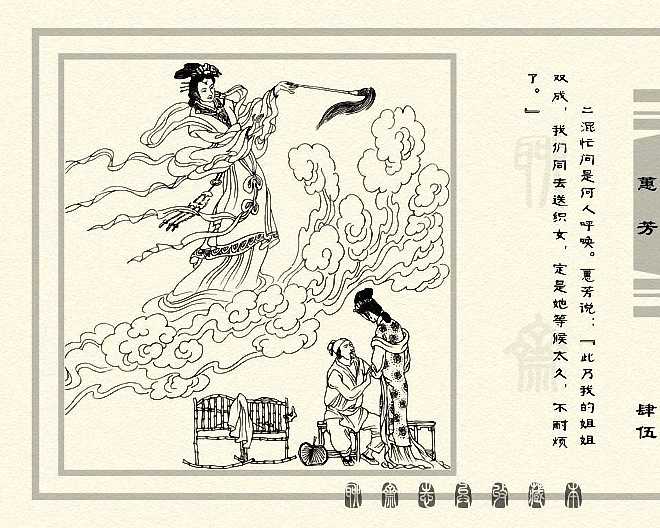 二混忙问是何人呼唤。蕙芳说：『此乃我的姐姐
双成，我们同去送织女，定是她等候太久，不耐烦
了。』
蕙芳
肆伍
聊斋志异收藏本